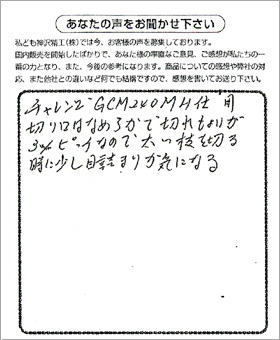 あなたの声をお聞かせ下さい
私ども神沢精工(株)では今、お客様の声を募集しております。
国内販売を開始したばかりで、あなた様の率直なご意見、ご感想が私たちの一
番の力となり、また、今後の参考になります。商品についての感想や弊社の対
応、また他社との違いなど何でも結構ですので、感想を書いてお送り下さい。
チャレンジ GCM240MH仕 用
切り口はなめらかで切れもよいが
3㎜ピッチなので太い枝を切る
時に少し目詰まりが気になる